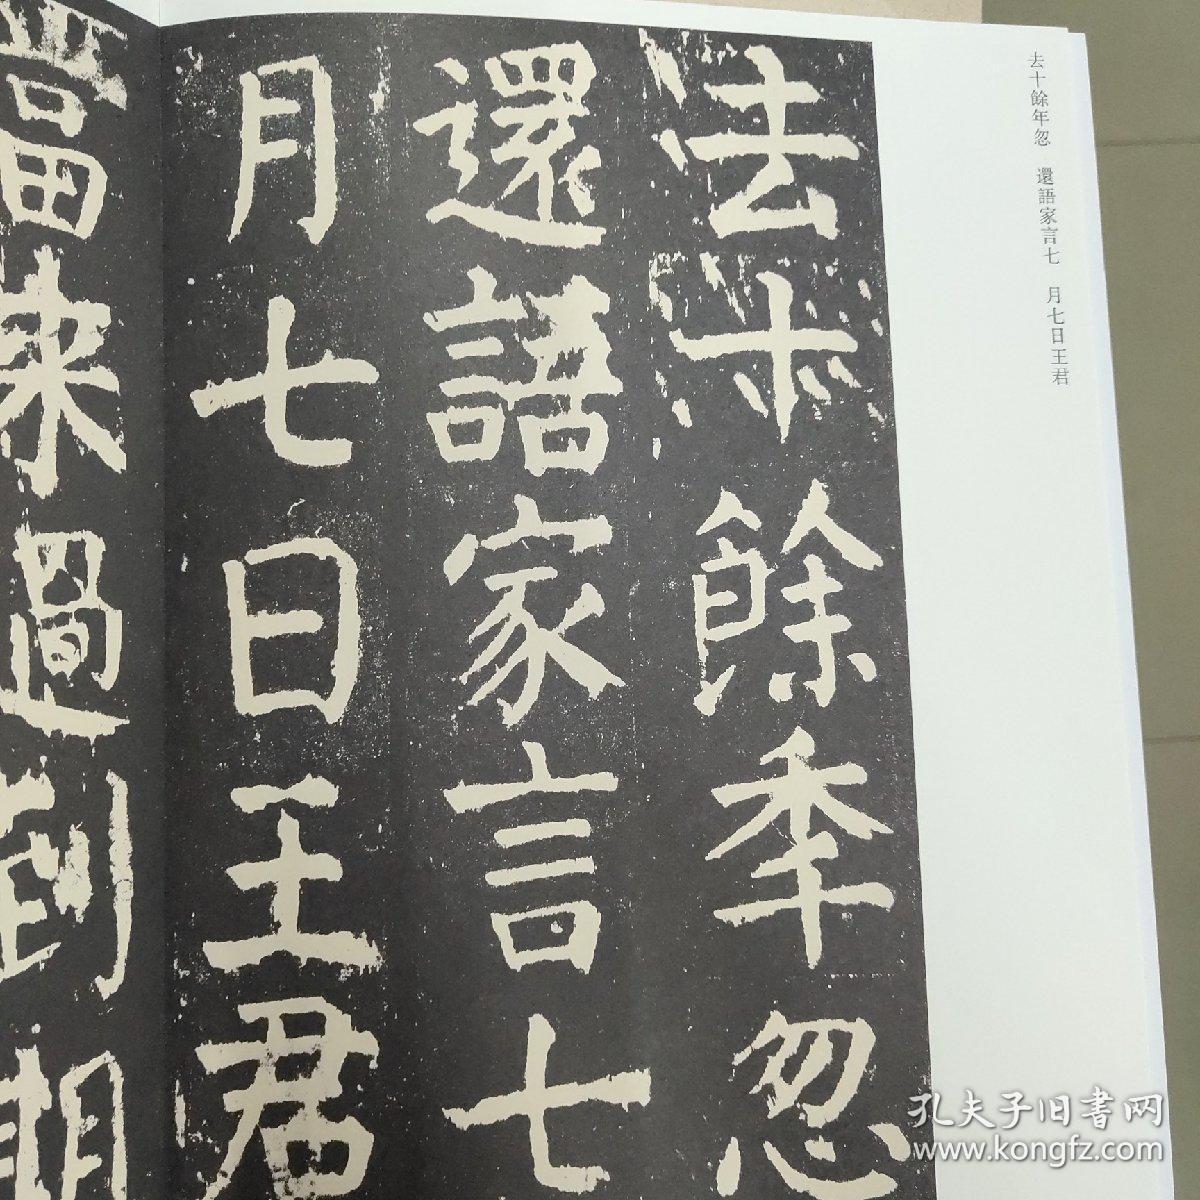 去十餘年忽
還語家言七
月七日王君
當來過到期
去十餘年忽　還語家言七　月七日王君
孔夫子旧書网
www.kongfz.com